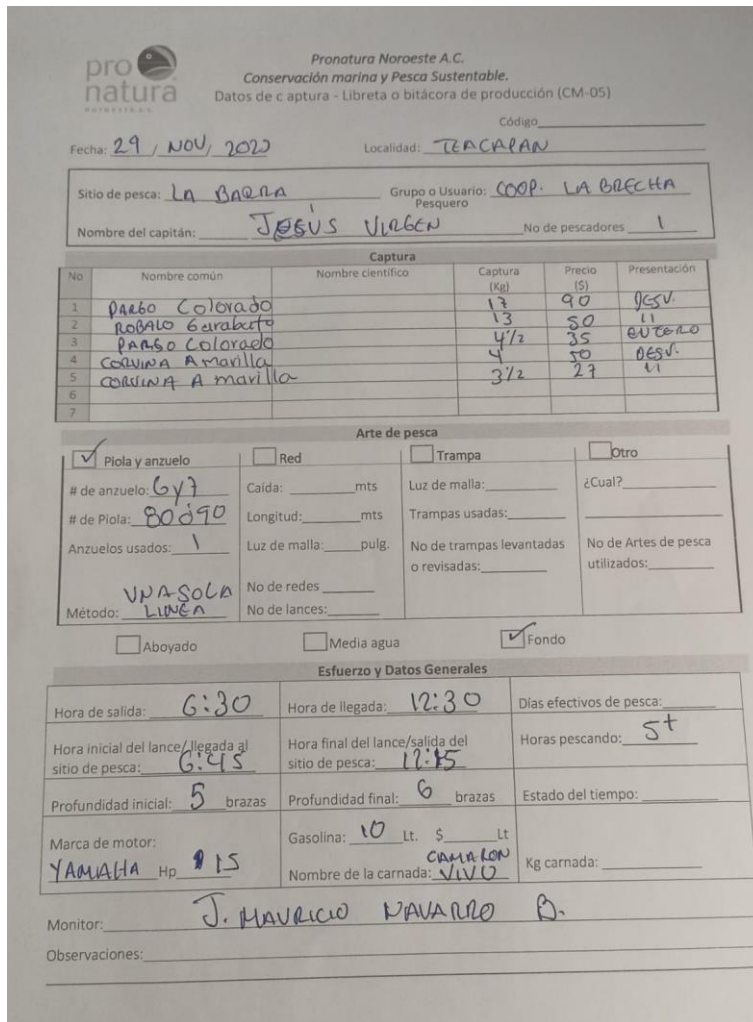 pro natura
NOROESTE A.C.
Pronatura Noroeste A.C.
Conservación marina y Pesca Sustentable.
Datos de c aptura - Libreta o bitácora de producción (CM-05)
Código
Fecha: 29 / NOV / 2020 Localidad: TEACAPAN
Sitio de pesca: LA BARRA Grupo o Usuario: COOP. LA BRECHA
Pesquero
Nombre del capitán: JESÚS VIRGEN No de pescadores 1
Captura
No Nombre común Nombre científico Captura (Kg) Precio ($) Presentación
1 PARGO Colorado 17 90 DESV.
2 ROBALO Garabato 13 50 11
3 PARGO Colorado 4 1/2 35 ENTERO
4 CORVINA Amarilla 4 50 DESV.
5 CORVINA Amarilla 3 1/2 27 11
6
7
Arte de pesca
Piola y anzuelo Red Trampa Otro
# de anzuelo: 6 y 7 Caída: mts Luz de malla: ¿Cual?
# de Piola: 80 ó 90 Longitud: mts Trampas usadas:
Anzuelos usados: 1 Luz de malla: pulg. No de trampas levantadas o revisadas: No de Artes de pesca utilizados:
Método: UNA SOLA LINEA No de redes
No de lances:
Aboyado Media agua Fondo
Esfuerzo y Datos Generales
Hora de salida: 6:30 Hora de llegada: 12:30 Días efectivos de pesca:
Hora inicial del lance/llegada al sitio de pesca: 6:45 Hora final del lance/salida del sitio de pesca: 12:15 Horas pescando: 5+
Profundidad inicial: 5 brazas Profundidad final: 6 brazas Estado del tiempo:
Marca de motor: Gasolina: 10 Lt. $ Lt
YAMAHA Hp 15 Nombre de la carnada: CAMARON VIVO Kg carnada:
Monitor: J. MAURICIO NAVARRO B.
Observaciones: